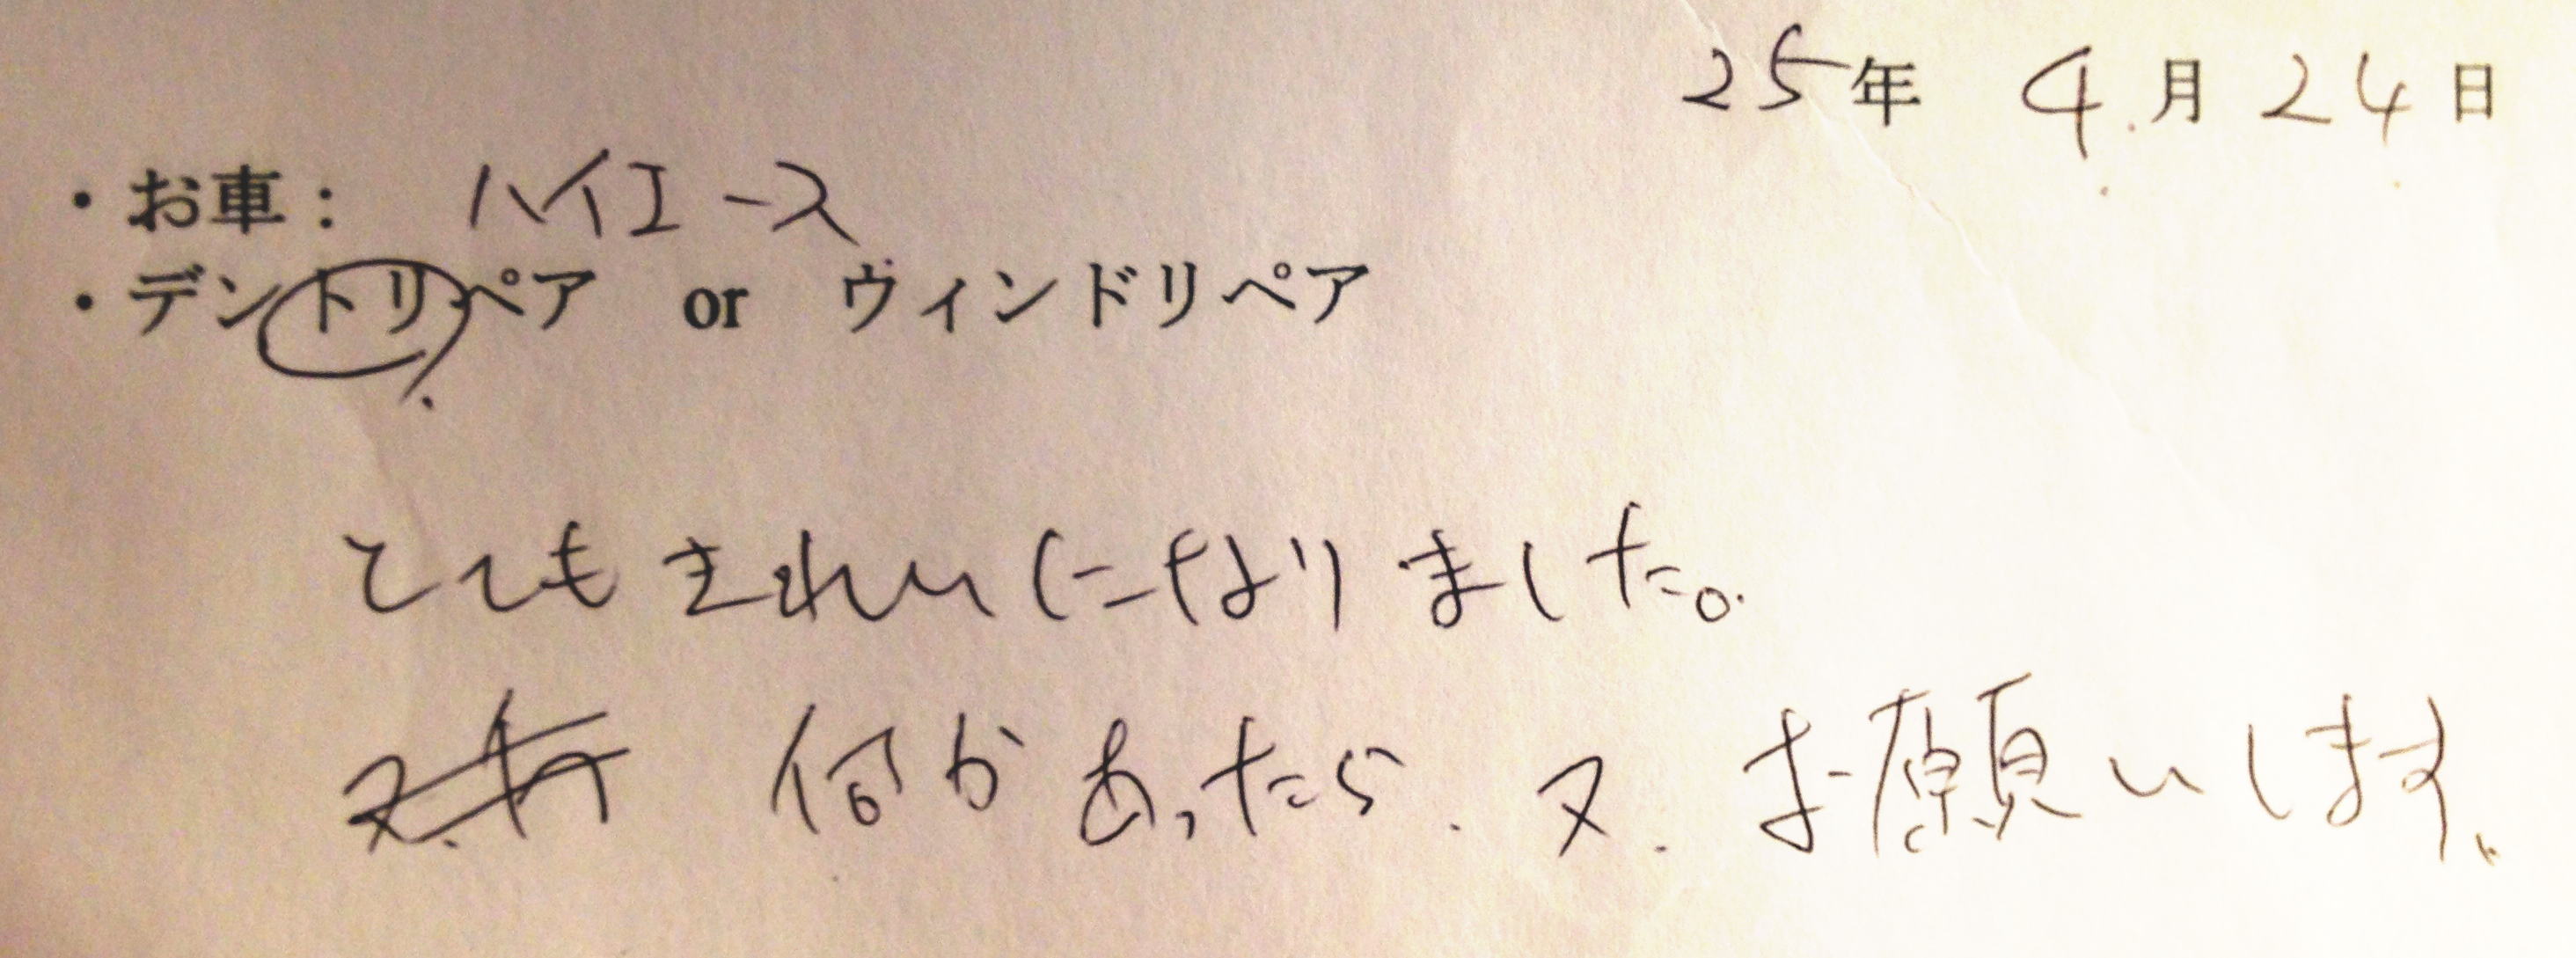 25年 4月24日
・お車： ハイエース
・デントリペア or ウィンドリペア
とてもきれいになりました。
何かあったら、又、お願いします。